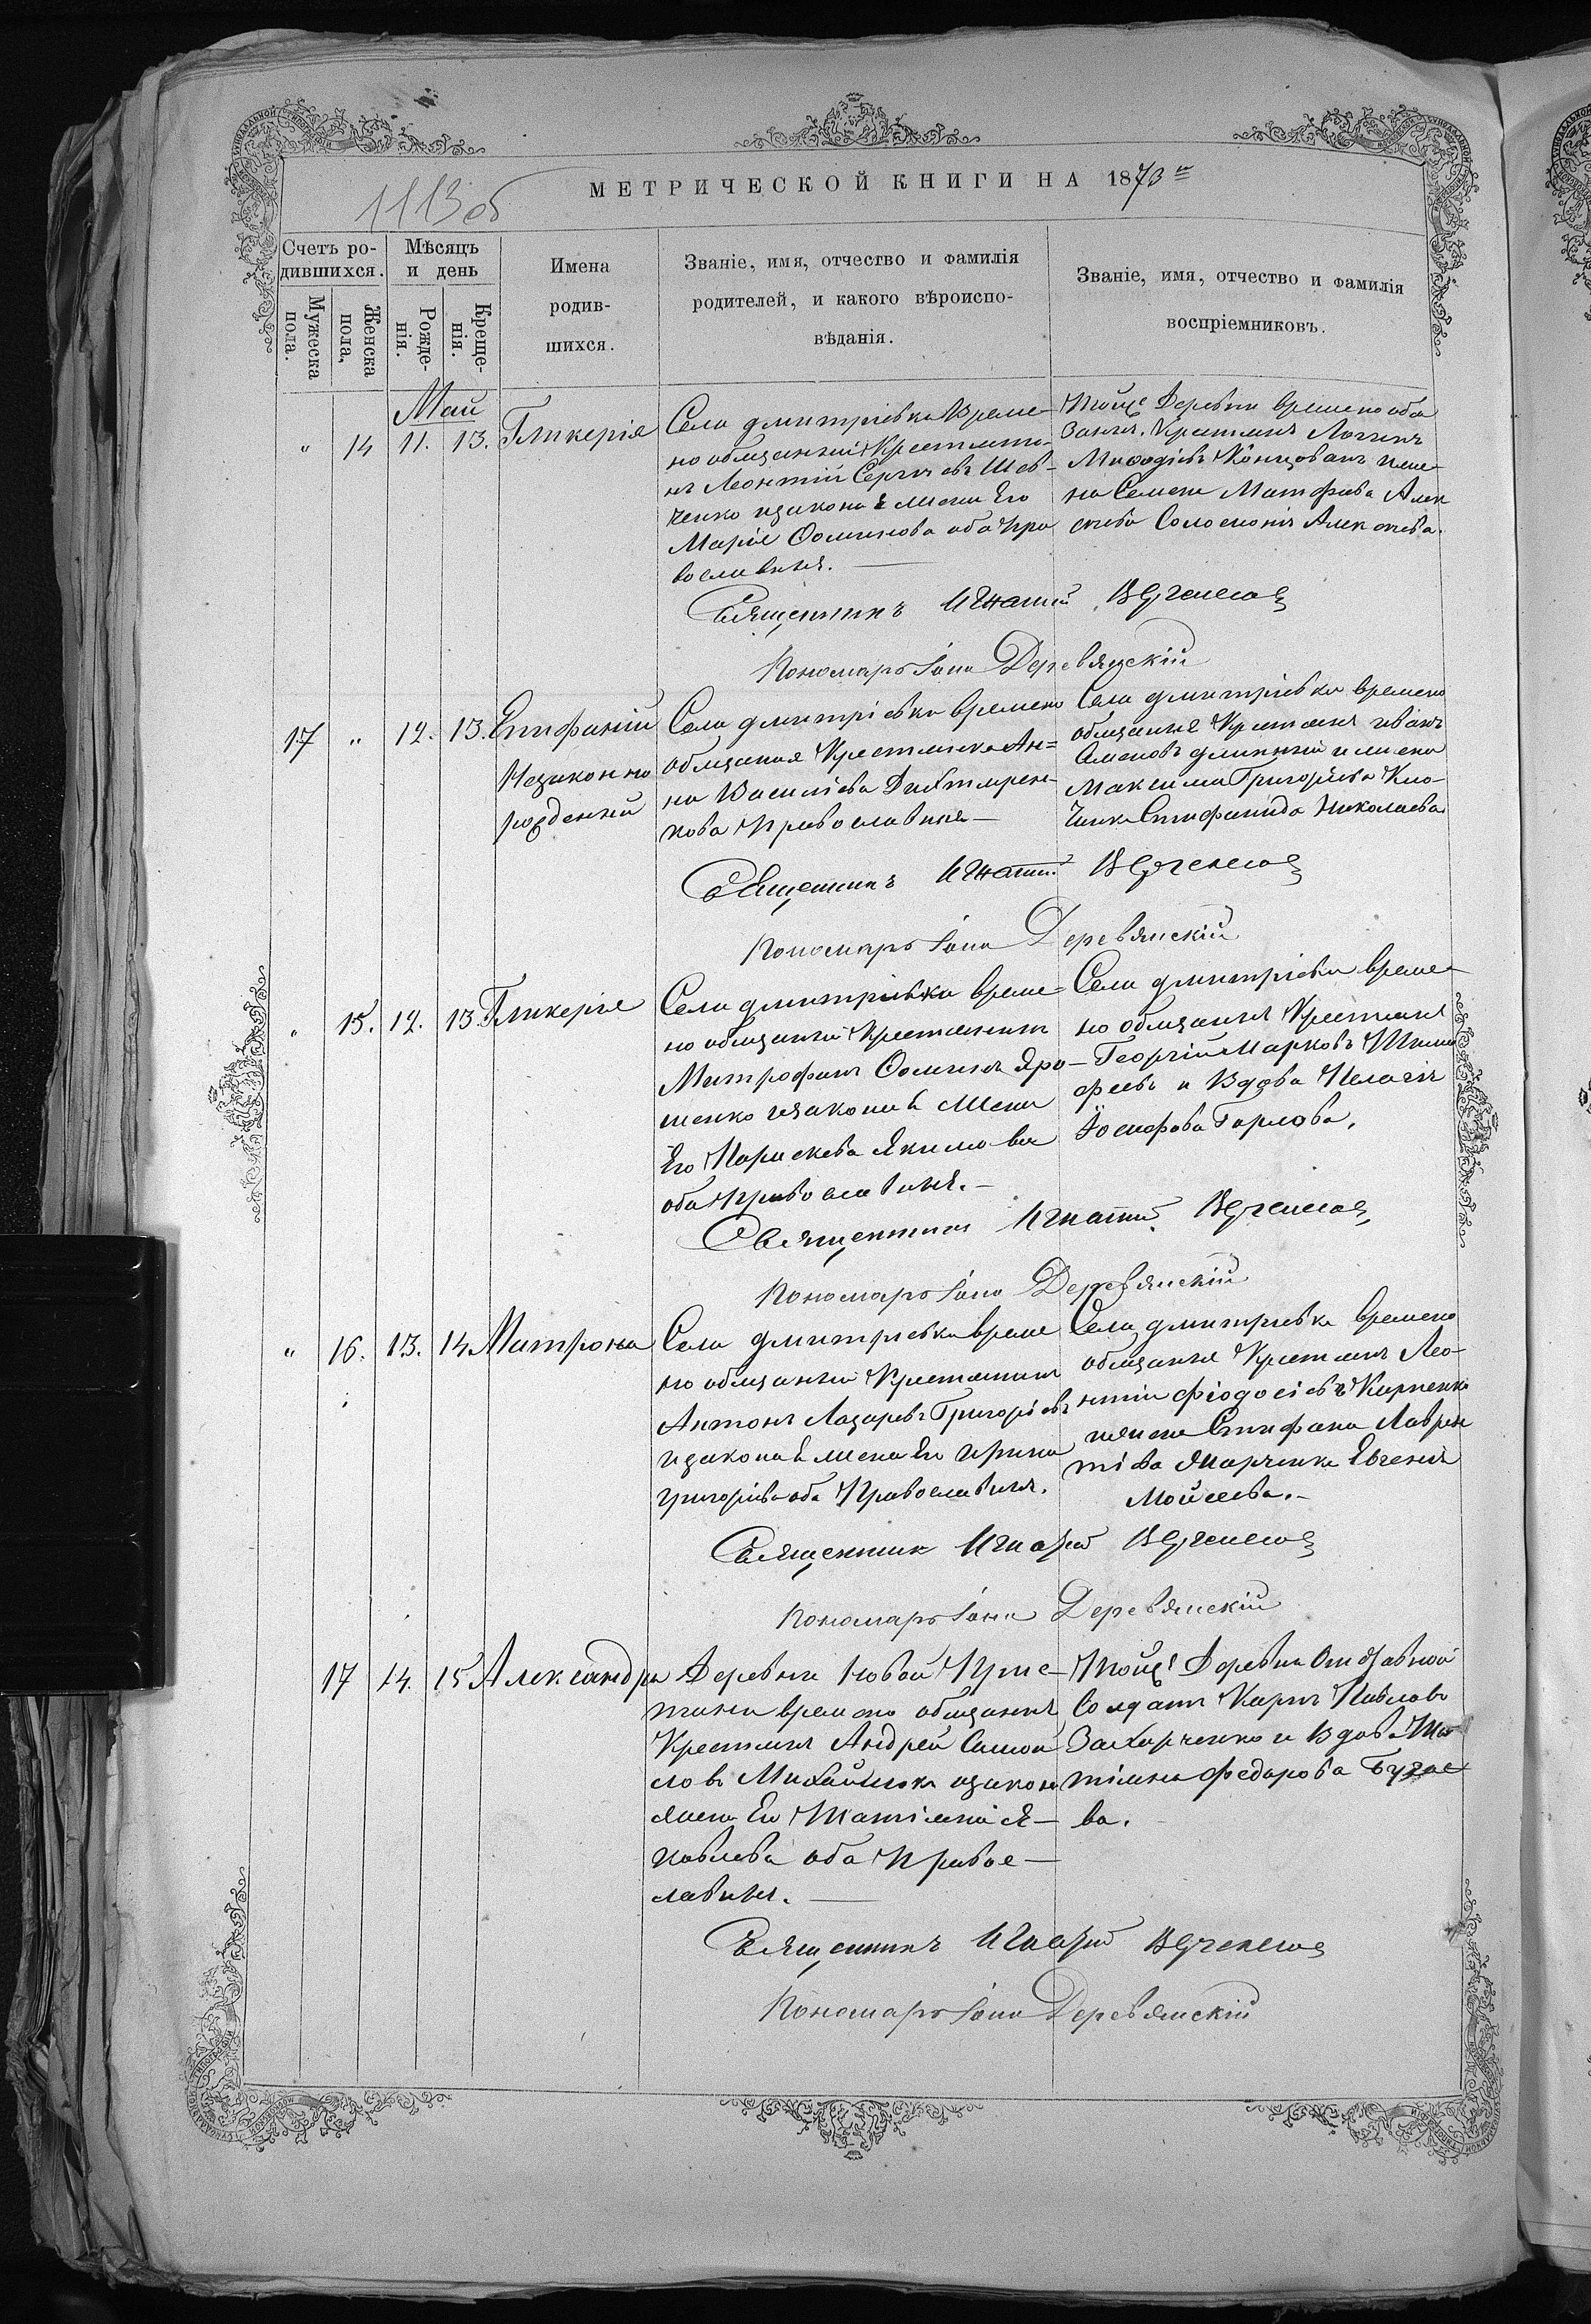 1113 об
МЕТРИЧЕСКОЙ КНИГИ НА 1870
Счетъ ро-
дившихся.
Мужеска
пола.
Женска
пола,
Мѣсяцъ
и день
Рожде-
нія.
Креще-
нія.
Имена
родив-
шихся.
Званіе, имя, отчество и фамилія
родителей, и какого вѣроиспо-
вѣданія.
Званіе, имя, отчество и фамилія
воспріемниковъ.
Май
" 14 11. 13. Гликерія
Села дмитріевка Време-
но обязанный Крестьяни-
нъ Леонтій Сергѣевъ Шев-
ченко изакона Жена Его
Марія Фоминова оба Пра
вославныя.
Тойже Деревни временооба
занъ. Крестьянъ Логинъ
Мифодіевъ и же-
на Семена Матфѣева Алек
сѣева Соломонія Алексѣева.
Священникъ Игнатій
Пономарь Іона Деревянскій
17 " 12. 13. Епифаній
Незаконно
рожденный
Села дмитріевка времено
обязаная Крестьянка Ан=
на Василіева Дихтярен-
кова Православная
Села дмитріевка времено
обязаные Крестьянъ иванъ
Семеновъ длинный и жена
Максима Григоріева Кло-
Епифанида Николаева
Священникъ Игнатій
Пономарь Іона Деревянскій
" 15. 12. 13. Гликерія
Села дмитріевка време=
но обязанный Крестьянинъ
Митрофанъ Фоминъ Яро-
шенко изаконая Жена
Его Параскева Якимова
оба православныя.
Села дмитріевки време-
но обязаныя Крестьяня
Георгій Марковъ
фѣевъ и Вдова Пелагія
Іосифова Горлова.
Священникъ Игнатій
Пономарь Іона Деревянскій
" 16. 13. 14. Матрона
Села дмитріевка време
но обязанный Крестьянинъ
Антонъ Лазаревъ Григоріевъ
изаконая жена Его Ирина
григоріева оба Православныя.
Села дмитріевка времено
обязаныя Крестьянъ Лео-
нтій Фіодосіевъ Карпенко
и жена Стифана Лаврен
тіева Марченка Евгенія
Мойсеева.
Священникъ Игнатій
Пономарь Іона Деревянскій
17 14. 15 Александра
Деревни Новой Пуше-
времено обязанъ
Крестьянъ Андрей Самой
ловъ Михайлюкъ изакон
жена Его Татіана Я-
ковлева оба Правос-
лавныя.
Тойже Деревни Отставной
Солдатъ Карпъ Павловъ
Захарченко и Вдова Та
тіяна Федорова Бугае
ва.
Священникъ Игнатій
Пономарь Іона Деревянскій